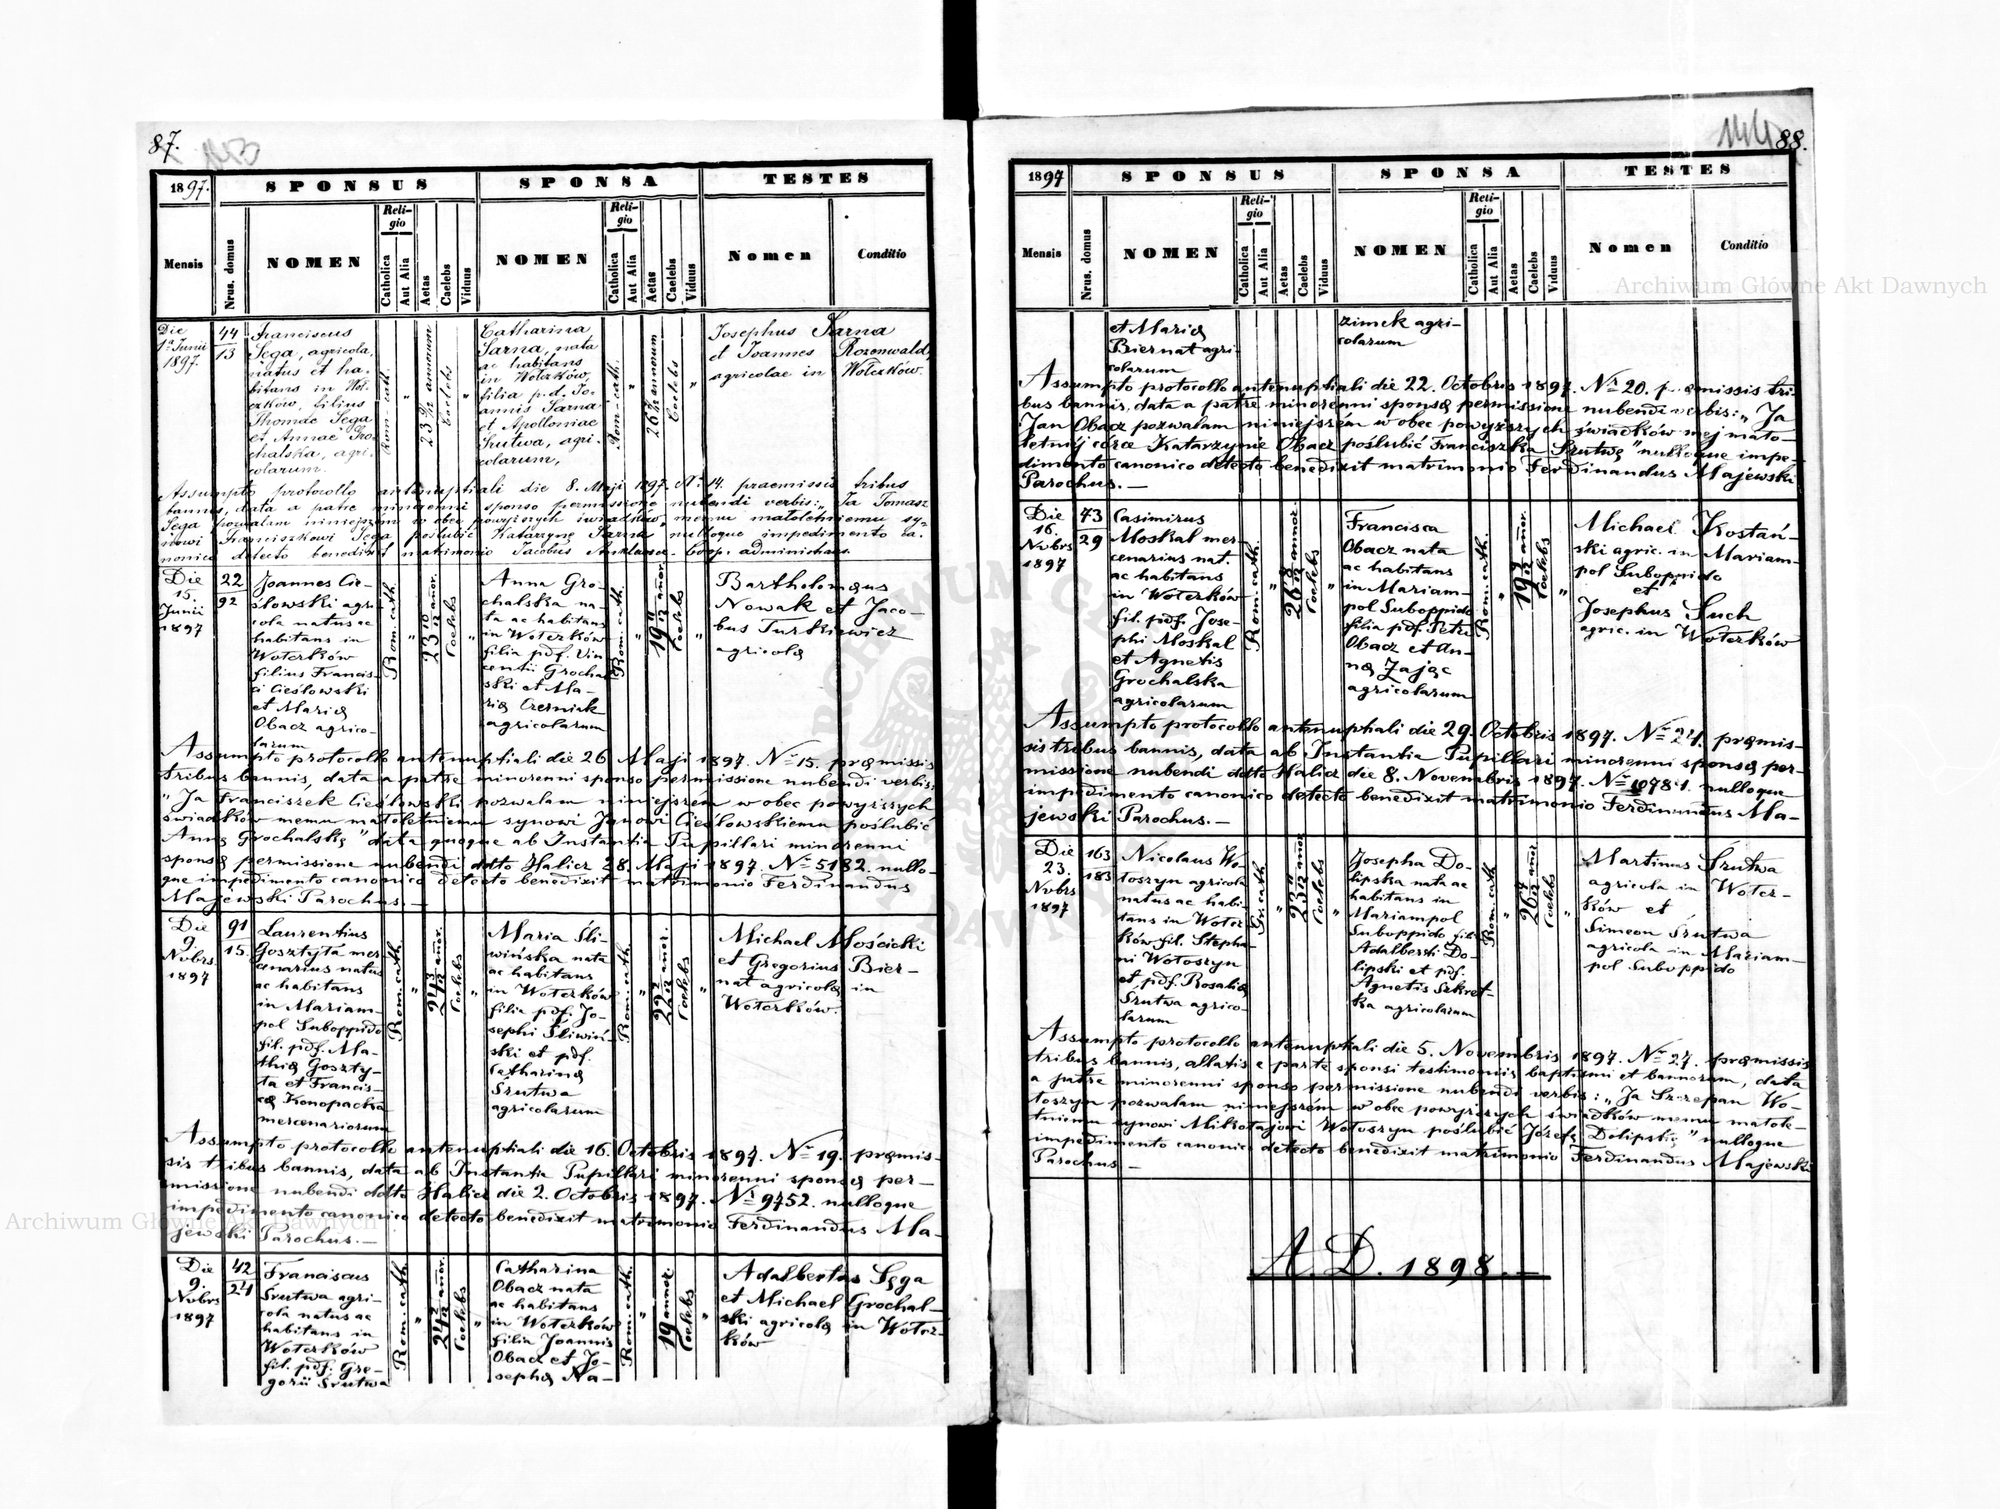 87.
1897.
SPONSUS
SPONSA
TESTES
Mensis
Nrus. domus
NOMEN
Religio
Catholica
Aut Alia
Aetas
Caelebs
Viduus
NOMEN
Religio
Catholica
Aut Alia
Aetas
Caelebs
Viduus
Nomen
Conditio
Die
1a Junii
1897.
44
13
Franciscus
Sega, agricola,
natus et ha-
bitans in Woł-
czków, filius
Thomae Sega
et Annae Gro-
chalska, agri-
colarum.
Rom-cath.
"
23 9/12 annorum
Coelebs
Catharina
Sarna, nata
ac habitans
in Wołczków,
filia p.d. Jo-
annis Sarna
et Apolloniae
Srutwa, agri-
colarum,
Rom-cath.
"
Coelebs
"
Josephus Sarna
et Joannes Rozenwald,
agricolae in Wołczków.
Assumpto protocollo antenuptiali die 8. Maji 1897. No 14. praemissis tribus
bannis, data a patre minorenni sponso permissione nubendi verbis: „Ja Tomasz
Sega pozwalam niniejszem w obec powyższych świadków, memu małoletniemu sy-
nowi Franciszkowi Sega poślubić Katarzynę Sarna" nulloque impedimento ca-
nonico detecto benedixit matrimonio Jacobus
Die
15.
Junii
1897
22
92
Joannes Cie-
słowski agri-
cola natus ac
habitans in
Wołczków
filius Francis-
ci Ciesłowski
et Mariæ
Obacz agrico-
larum
Rom. cath.
"
23 10/12 añor.
Coelebs
"
Anna Gro-
chalska na-
ta ac habitans
in Wołczków
filia pdf. Vin-
centii Grochal-
ski et Ma-
riæ Czerniak
agricolarum
Rom. cath.
"
19 11/12 añor.
Coelebs
"
Bartholomæus
Nowak et Jaco-
bus Turkiewicz
agricolæ
Assumpto protocollo antenuptiali die 26. Maji 1897. No 15. præmissis
tribus bannis, data a patre minorenni sponso permissione nubendi verbis:
„Ja Franciszek Ciesłowski pozwalam niniejszem w obec powyższych
świadków memu małoletniemu synowi Janowi Ciesłowskiemu poślubić
Annę Grochalskę" data quoque ab Instantia Pupillari minorenni
sponsæ permissione nubendi ddto Halicz 28. Maji 1897. No 5182. nullo-
que impedimento canonico detecto benedixit matrimonio Ferdinandus
Majewski Parochus. —
Die
9.
Nvbrs
1897
91
15.
Laurentius
Gosztyła mer-
cenarius natus
ac habitans
in Mariam-
pol Suboppido
fil. pdf. Ma-
thiæ Goszty-
ła et Francis-
cæ Konopacka
mercenariorum
Rom. cath.
"
24 3/12 añor.
Coelebs
"
Maria Śli-
wińska nata
ac habitans
in Wołczków
filia pdf. Jo-
sephi Śliwiń-
ski et pdf.
Catharinæ
Srutwa
agricolarum
Rom. cath.
"
22 2/12 añor.
Coelebs
"
Michael Mościcki
et Gregorius Bier-
nat agricolæ in
Wołczków.
Assumpto protocollo antenuptiali die 16. Octobris 1897. No 19. præmis-
sis tribus bannis, data ab Instantia Pupillari minorenni sponsæ per-
missione nubendi ddto Halicz die 2. Octobris 1897. No 9752. nulloque
impedimento canonico detecto benedixit matrimonio Ferdinandus Ma-
jewski Parochus. —
Die
9.
Nvbrs
1897
42
24
Franciscus
Srutwa agri-
cola natus ac
habitans in
Wołczków
fil. pdf. Gre-
gorii Srutwa
Rom. cath.
"
24 2/12 añor.
Coelebs
"
Catharina
Obacz nata
ac habitans
in Wołczków
filia Joannis
Obacz et Jo-
sephæ Na-
Rom. cath.
"
19 annor.
Coelebs
"
Adalbertus Sęga
et Michael Grochal-
ski agricolæ in Wołcz-
ków
88.
1897
SPONSUS
SPONSA
TESTES
Mensis
Nrus. domus
NOMEN
Religio
Catholica
Aut Alia
Aetas
Caelebs
Viduus
NOMEN
Religio
Catholica
Aut Alia
Aetas
Caelebs
Viduus
Nomen
Conditio
et Mariæ
Biernat agri-
colarum
zimek agri-
colarum
Assumpto protocollo antenuptiali die 22. Octobris 1897. No 20. præmissis tri-
bus bannis, data a patre minorenni sponsæ permissione nubendi verbis: „Ja
Jan Obacz pozwalam niniejszém w obec powyższych świadków mej mało-
letniej córce Katarzynie Obacz poślubić Franciszka Srutwę" nulloque impe-
dimento canonico detecto benedixit matrimonio Ferdinandus Majewski
Parochus. —
Die
16.
Nvbrs
1897
73
29
Casimirus
Moskal mer-
cenarius nat.
ac habitans
in Wołczków
fil. pdf. Jose-
phi Moskal
et Agnetis
Grochalska
agricolarum
Rom. cath.
"
26 8/12 annor.
Coelebs
"
Francisca
Obacz nata
ac habitans
in Mariam-
pol Suboppido
filia pdf. Petri
Obacz et An-
næ Zając
agricolarum
Rom. cath.
"
Coelebs
"
Michael Kostań-
ski agric. in Mariam-
pol Suboppido
et
Josephus Such
agric. in Wołczków
Assumpto protocollo antenuptiali die 29. Octobris 1897. No 24. præmis-
sis tribus bannis, data ab Instantia Pupillari minorenni sponsæ per-
missione nubendi ddto Halicz die 8. Novembris 1897. No 10781. nulloque
impedimento canonico detecto benedixit matrimonio Ferdinandus Ma-
jewski Parochus. —
Die
23.
Nvbrs
1897
163
183
Nicolaus Wo-
łoszyn agricola
natus ac habi-
tans in Wołcz-
ków fil. Stepha-
ni Wołoszyn
et pdf. Rosaliæ
Srutwa agrico-
larum
Gr. cath.
"
23 11/12 añor
Coelebs
"
Josepha Do-
lipska nata ac
habitans in
Mariampol
Suboppido fil.
Adalberti Do-
lipski et pdf.
Agnetis Szkret-
ka agricolarum
Rom. cath
"
26 7/12 añor
Coelebs
"
Martinus Srutwa
agricola in Wołcz-
ków et
Simeon Srutwa
agricola in Mariam-
pol Suboppido
Assumpto protocollo antenuptiali die 5. Novembris 1897. No 27. præmissis
tribus bannis, allatis e parte sponsi testimoniis baptismi et bannorum, data
a patre minorenni sponso permissione nubendi verbis: „Ja Szczepan Wo-
łoszyn pozwalam niniejszém w obec powyższych świadków memu małole-
tniemu synowi Mikołajowi Wołoszyn poślubić Józefę Dolipskię" nulloque
impedimento canonico detecto benedixit matrimonio Ferdinandus Majewski
Parochus —
A. D. 1898. —
Archiwum Główne Akt Dawnych
Archiwum Główne Akt Dawnych